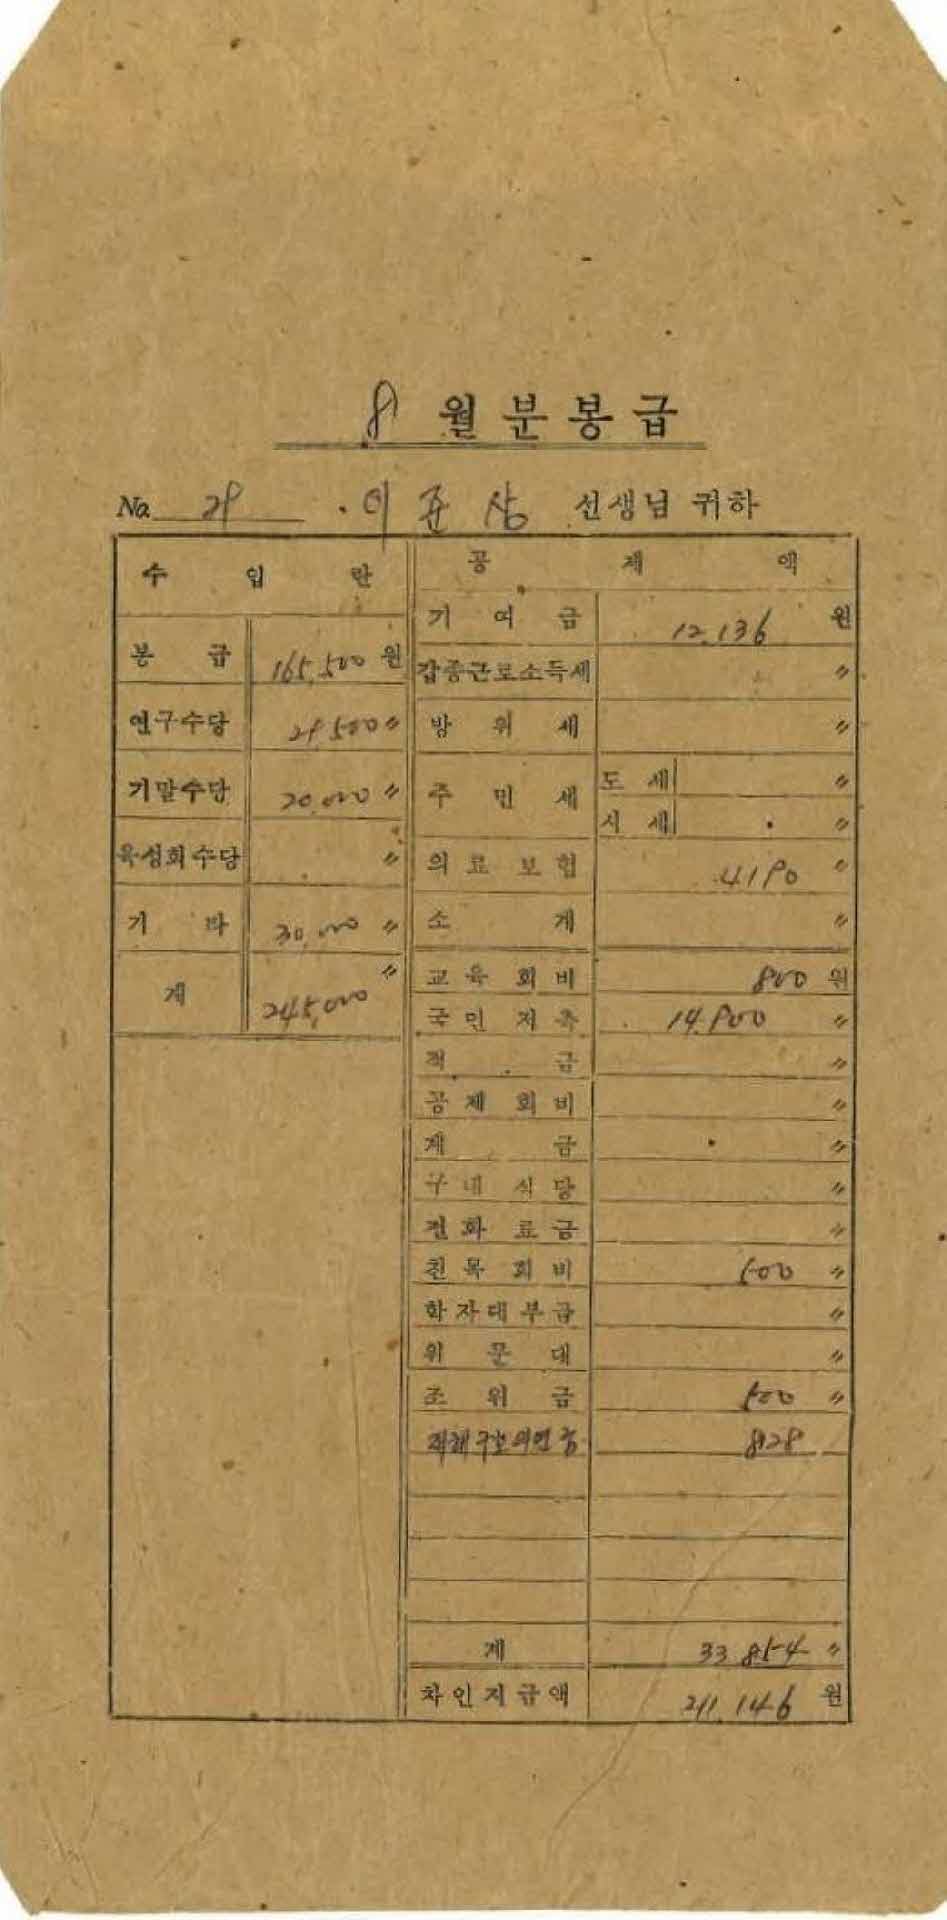 8 월분봉급
No. 29 이준상 선생님 귀하
수입란
봉급 165,500 원
연구수당 29500 〃
기말수당 20,000 〃
육성회수당 〃
기타 30,000 〃
계 245,000 〃
공제액
기여금 12,136 원
갑종근로소득세 〃
방위세 〃
주민세 도세 〃
시세 〃
의료보험 4190 〃
소계 〃
교육회비 800 원
국민저축 14.900 〃
적금 〃
공제회비 〃
계금 〃
구내식당 〃
전화료금 〃
친목회비 500 〃
학자대부금 〃
위문대 〃
조위금 500 〃
재해구호의연금 828
계 33 854 〃
차인지급액 211,146 원